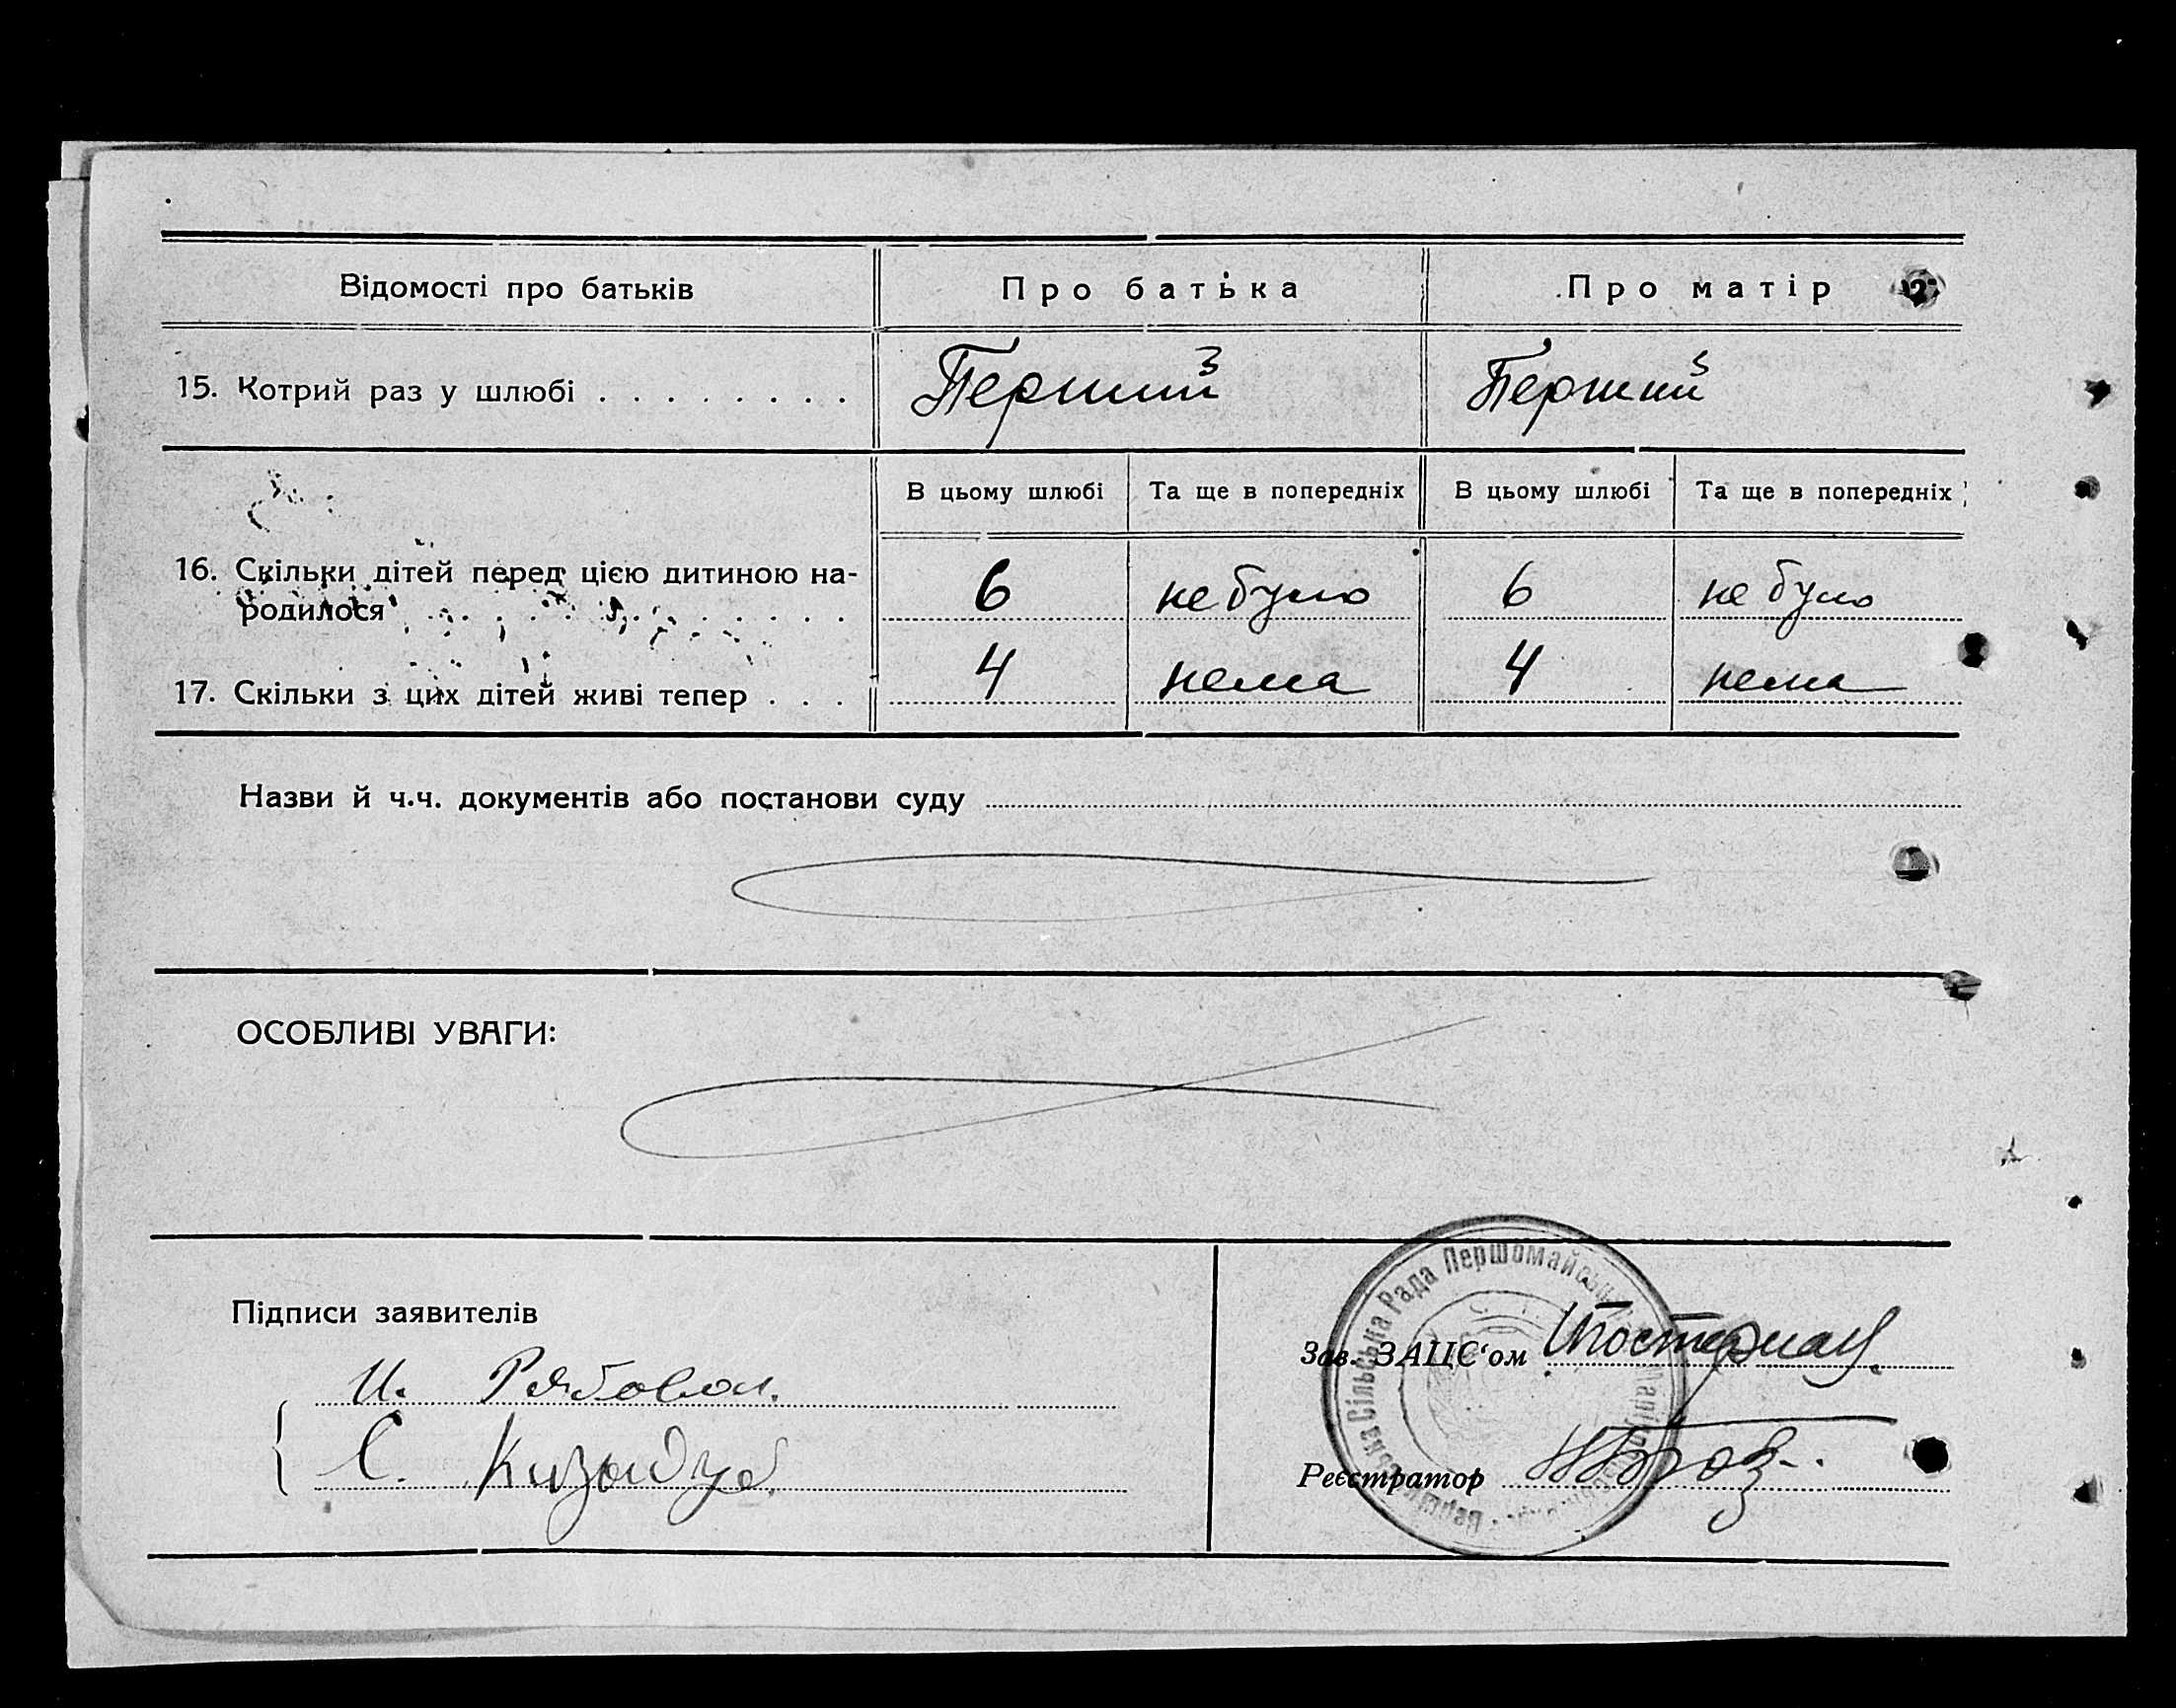 Відомості про батьків Про батька Про матір
15. Котрий раз у шлюбі . . . . . . . . Перший Перший
В цьому шлюбі Та ще в попередніх В цьому шлюбі Та ще в попередніх
16. Скільки дітей перед цією дитиною на-
родилося 6 не було 6 не було
17. Скільки з цих дітей живі тепер . . . 4 нема 4 нема
Назви й ч.ч. документів або постанови суду
ОСОБЛИВІ УВАГИ:
Підписи заявителів
И. Рябовол.
С.
Сільська Рада Першомайсь
Зав. ЗАЦС'ом
Реєстратор